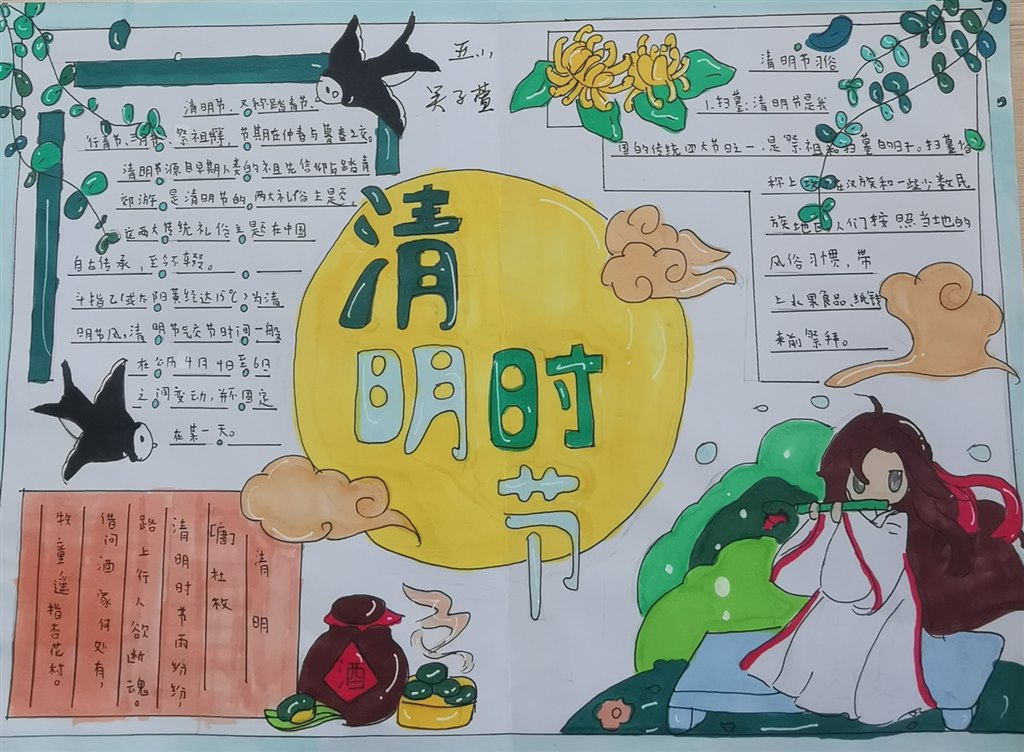 五小
吴子萱
清明时节
清明节,又称踏青节、
行青节、三月节、祭祖节,节期在仲春与暮春之交。
清明节源自早期人类的祖先信仰与踏青
郊游是清明节的两大礼俗主题,
这两大传统礼俗主题在中国
自古传承,至今不辍。
斗指乙(或太阳黄经达15℃)为清
明节气,清明节气交节时间一般
在公历4月4日至6日
之间变动,并不固定
在某一天。
清明节习俗
1.扫墓:清明节是我
国的传统四大节日之一,是祭祖和扫墓的日子。扫墓俗
称上坟,在汉族和一些少数民
族地区人们按照当地的
风俗习惯,带
上水果食品、纸钱
来前祭拜。
清明
[唐]杜牧
清明时节雨纷纷,
路上行人欲断魂。
借问酒家何处有,
牧童遥指杏花村。
酒